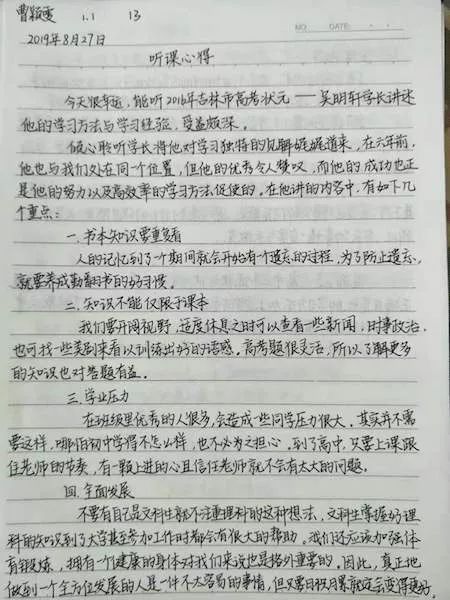 曹颖雯 1.1 13
NO. DATE:
2019年8月27日
听课心得
今天很幸运,能听2016年吉林市高考状元——吴明轩学长讲述
他的学习方法与学习经验,受益颇深。
倾心聆听学长将他对学习独特的见解娓娓道来,在六年前,
他也与我们处在同一个位置,但他的优秀令人赞叹,而他的成功也正
是他的努力以及高效率的学习方法促使的。在他讲的内容中,有如下几
个重点:
一.书本知识要重复看
人的记忆到了一个期间就会开始有一个遗忘的过程,为了防止遗忘,
就要养成勤翻书的好习惯。
二.知识不能仅限于课本
我们要开阔视野,适度休息之时可以查看一些新闻,时事政治,
也可找一些美剧来看以训练出好的语感。高考题很灵活,所以了解更多
的知识也对答题有益。
三.学业压力
在班级里优秀的人很多,会造成一些同学压力很大。其实并不需
要这样,哪怕初中学得不怎么样,也不必为之担心。到了高中,只要上课跟
住老师的节奏,有一颗上进的心且信任老师就不会有太大的问题。
四.全面发展
不要有自己是文科生就不注重理科的这种想法,文科生掌握好理
科的知识到了大学甚至参加工作时都会有很大的帮助。我们还应该加强体
育锻炼,拥有一个健康的身体对我们来说也是格外重要的。因此,真正地
做到一个全方位发展的人是一件不太容易的事情,但只要日积月累就定会变得更好。